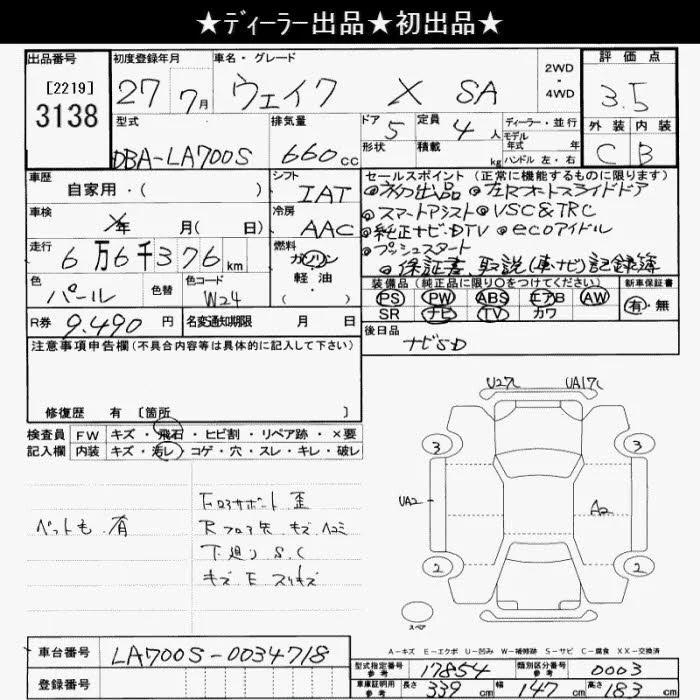 ★ディーラー出品★初出品★
出品番号
[2219]
3138
初度登録年月
27年 7月
車名・グレード
ウェイク X SA
2WD
・
4WD
評価点
3.5
外装 内装
C B
型式
DBA-LA700S
排気量
660cc
ドア 5
形状
定員 4人
積載 kg
ディーラー・並行
モデル年式 年
ハンドル 左・右
車歴
自家用・( )
シフト
IAT
車検
年 月( 日)
冷房
AAC
走行
6万6千376km
燃料
ガソリン
軽油・
( )
色
パール
色替
色コード
W24
R券 9.490円
名変通知期限 月 日
セールスポイント(正常に機能するものに限ります)
◎初出品 ◎左右オートスライドドア
◎スマートアシスト ◎VSC&TRC
◎純正ナビ・DTV ◎ecoアイドル
◎プッシュスタート
◎保証書、取説(車・ナビ)記録簿
装備品(純正品に限り○をつけてください)
PS PW ABS エアB AW
SR ナビ TV カワ
新車保証書
有・無
後日品
ナビSD
注意事項申告欄(不具合内容等は具体的に記入して下さい)
修復歴 有 [箇所 ]
検査員 FW キズ・飛石・ヒビ割・リペア跡・×要
記入欄 内装 キズ・汚レ・コゲ・穴・スレ・キレ・破レ
ペット毛 有
Fロアサポート 歪
Rフロア先 キズ ヘコミ
下廻り S.C
キズ E スリキズ
U27L UA17L
3 3
UA2 A2
2 2
スペア
A-キズ E-エクボ U-凹み W-補修跡 S-サビ C-腐食 XX-交換済
車台番号
LA700S-0034718
登録番号
型式指定番号 参考 17854
類別区分番号 参考 0003
車庫証明用 参考 長さ 339cm 幅 147cm 高さ 183cm